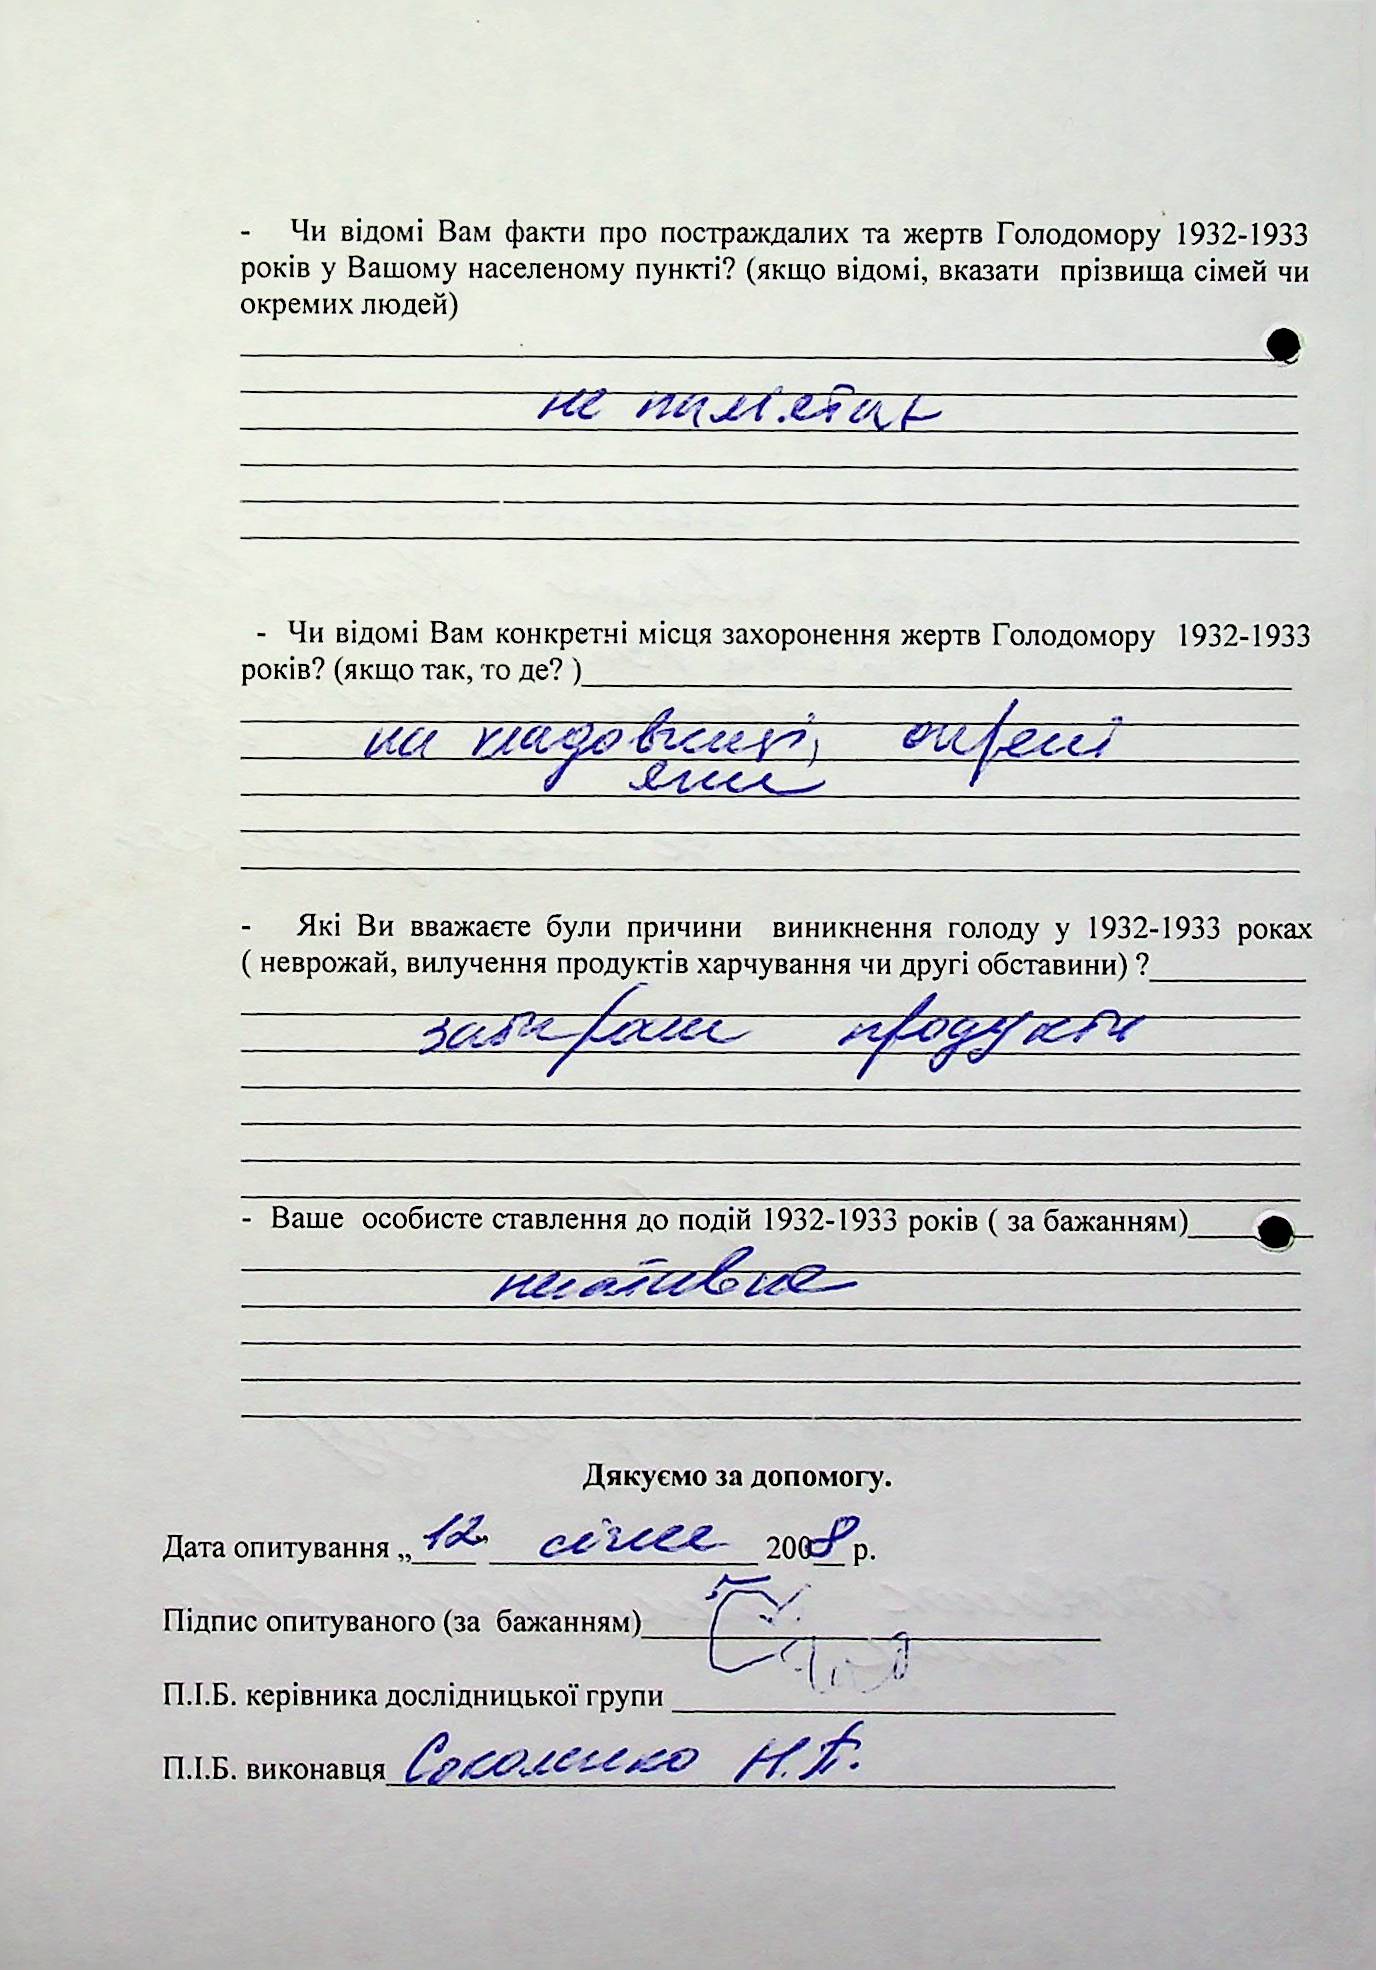 - Чи відомі Вам факти про постраждалих та жертв Голодомору 1932-1933
років у Вашому населеному пункті? (якщо відомі, вказати прізвища сімей чи
окремих людей)
не пам'ятає
- Чи відомі Вам конкретні місця захоронення жертв Голодомору 1932-1933
років? (якщо так, то де? )
на кладовищі, окремі
ями
- Які Ви вважаєте були причини виникнення голоду у 1932-1933 роках
( неврожай, вилучення продуктів харчування чи другі обставини) ?
забирали продукти
- Ваше особисте ставлення до подій 1932-1933 років ( за бажанням)
негативне
Дякуємо за допомогу.
Дата опитування „12” січня 2008 р.
Підпис опитуваного (за бажанням)
П.І.Б. керівника дослідницької групи
П.І.Б. виконавця Соколенко Н.П.